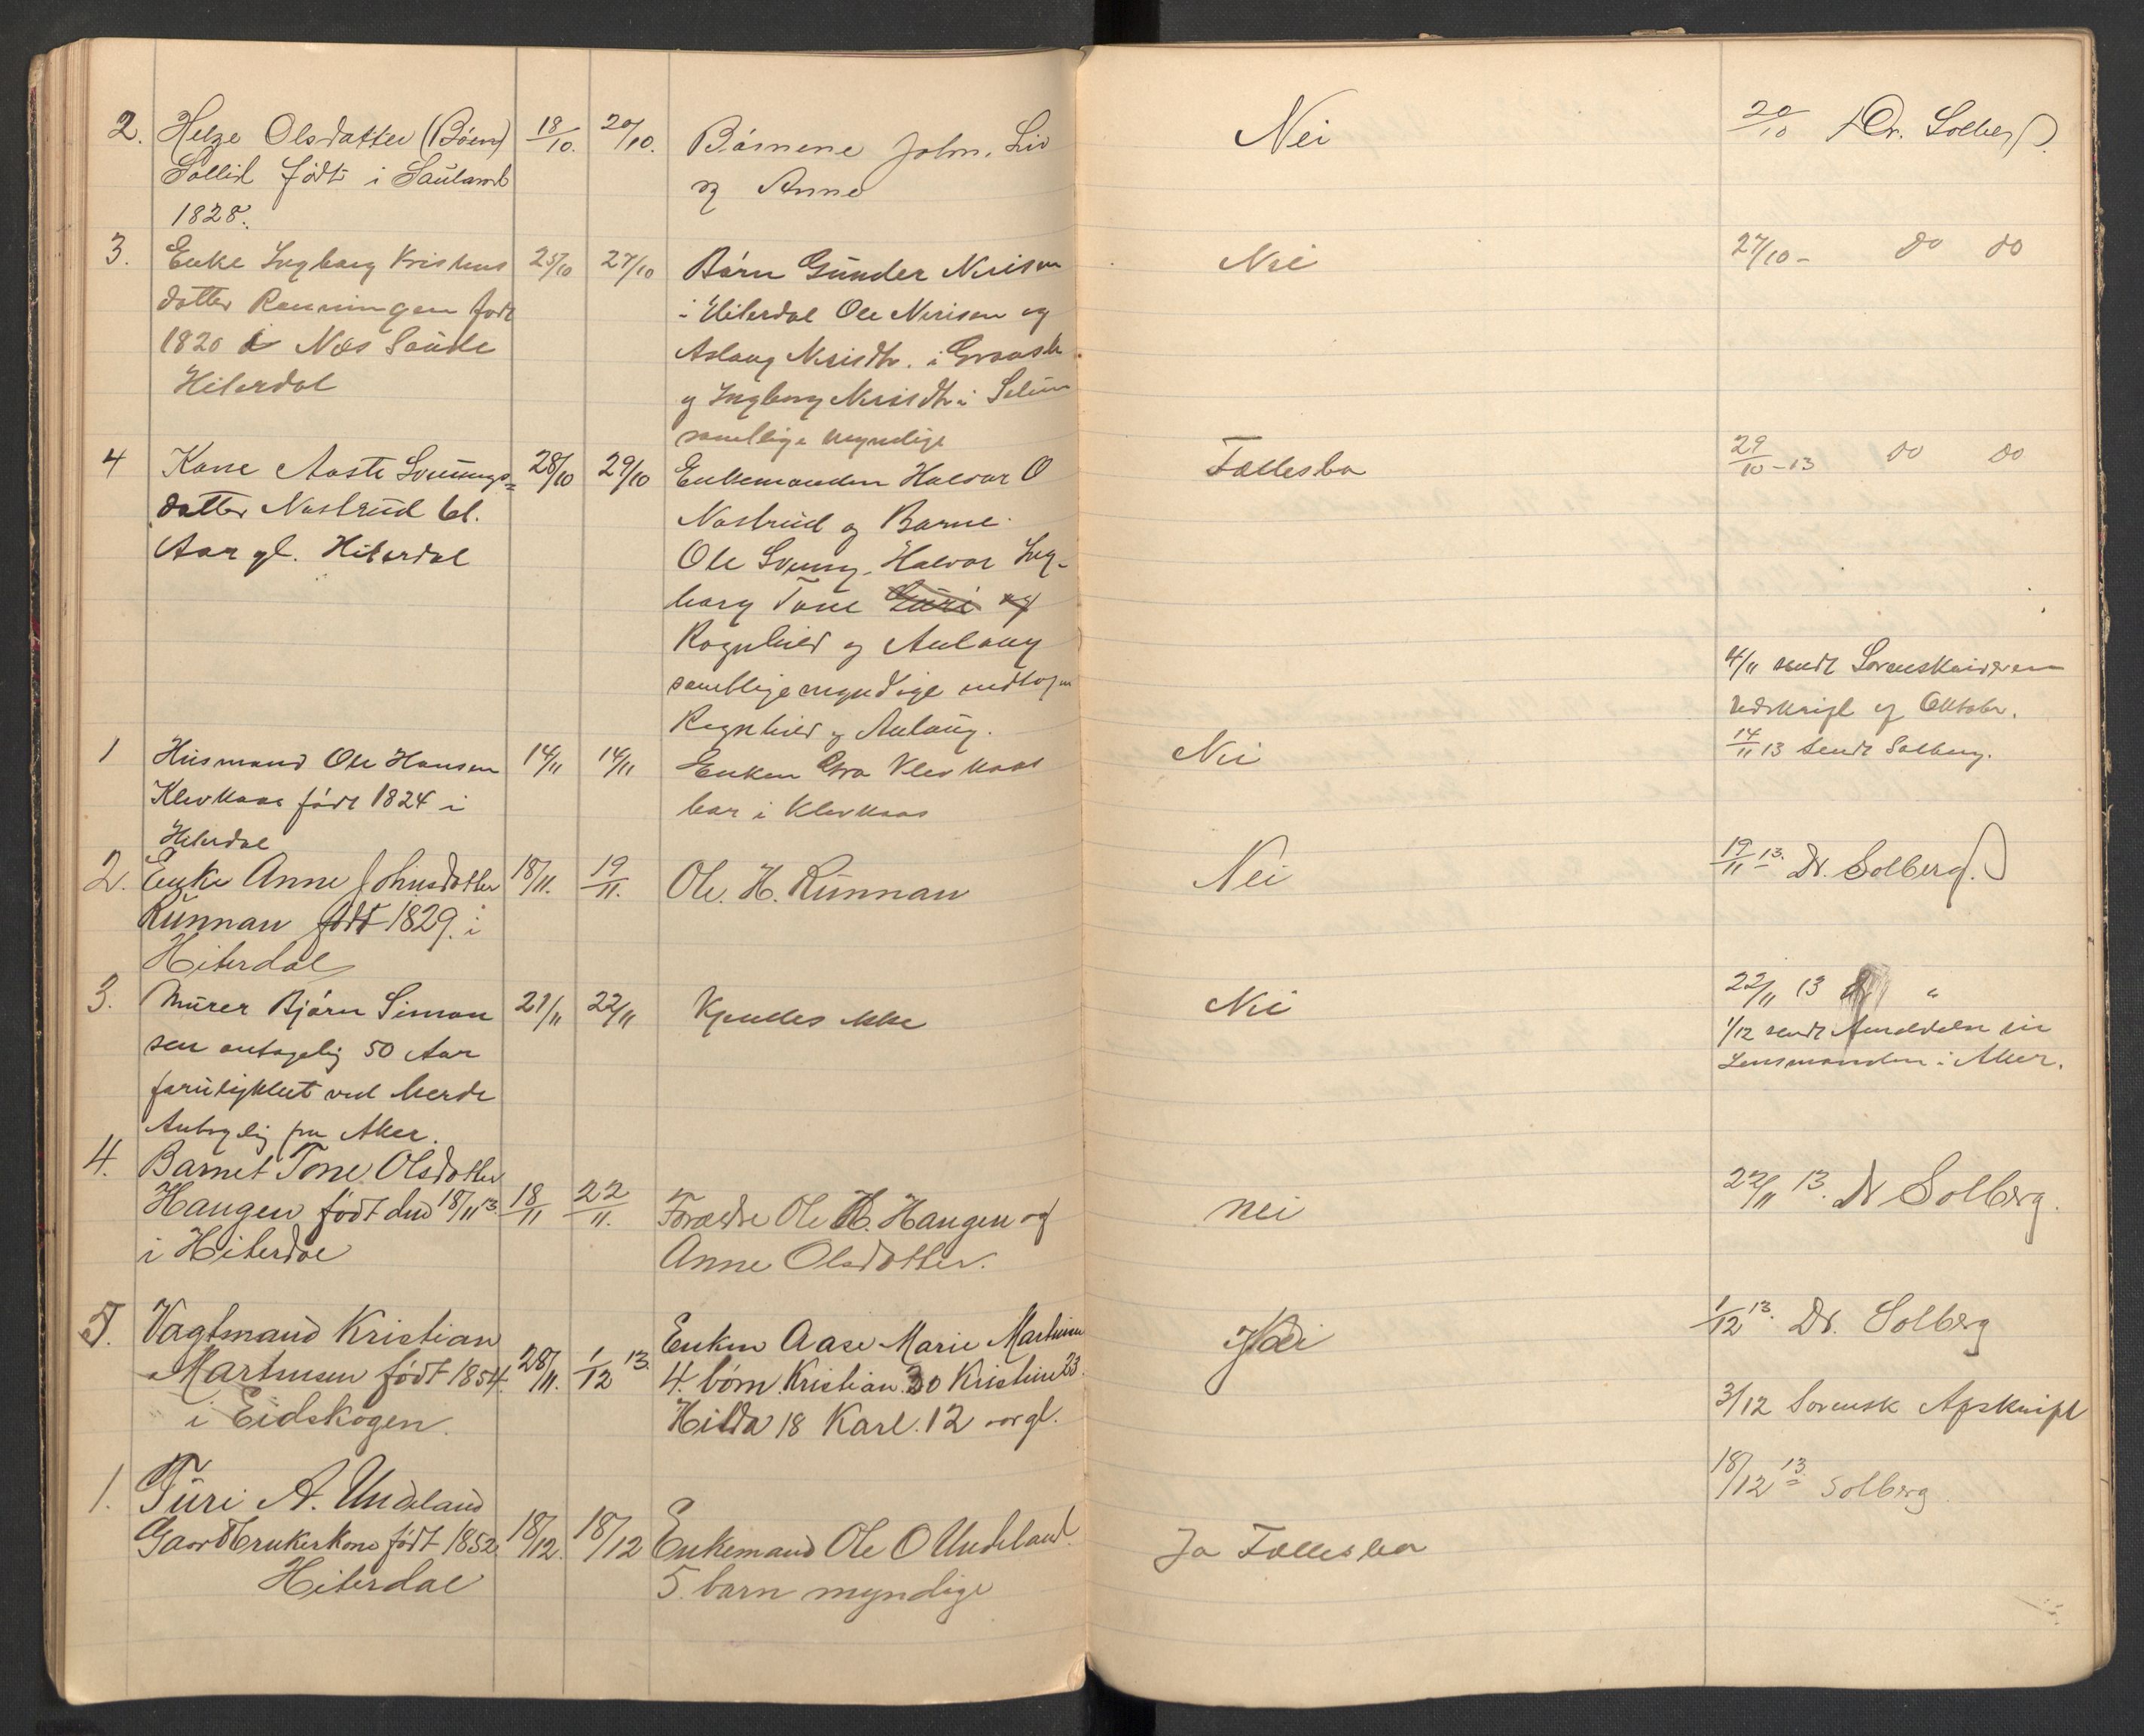 2. Helge Olsdatter (Bøen) 18/10. 20/10. Børnene John, Liv Nei 20/10 Dr. Solberg.
Sollid født i Sauland og Anne
1828.
3. Enke Ingborg Kristens 25/10 27/10 Børn Gunder Nirisen Nei 27/10 - do do
datter Rønningen født i Hiterdal Ole Nirisen og
1820 i Næs Saude Aslaug Nirisdtr. i Gransh
Hiterdal og Ingborg Nirisdtr i Selum
samtlige myndige
4 Kone Aaste Svenungs= 28/10 29/10 Enkemanden Halvor O Fællesbo 29/10-13 do do
datter Nastrud 61. Nastrud og Barne.
Aar gl. Hiterdal Ole Svenung. Halvor Ing-
borg Tone Guri og
Ragnhild og Aulaug
samtlige myndige undtagen
Ragnhild og Aulaug.
4/11 sendt Sorenskriveren
Udskrift af Oktober.
1 Husmand Ole Hansen 14/11 14/11 Enken Gro Klevkaas Nei 14/11 13 sendt Solberg.
Klevkaas født 1824 i bor i Klevkaas
Hiterdal
2. Enke Anne Johnsdatter 18/11. 19/11. Ole. H. Runnan Nei 19/11 13. Dr. Solberg.
Runnan født 1829. i
Hiterdal
3. Murer Bjørn Simon 21/11 22/11 Kjendes ikke Nei 22/11 13 "
sen antagelig 50 Aar 1/12 sendt Anmeldelse til
forulykket ved Lensmanden i Aker.
Antagelig fra Aker.
4. Barnet Tone Olsdatter
Haugen født den 18/11 13. 18/11 22/11. Forædre Ole H. Haugen og nei 22/11 13. Dr Solberg.
i Hiterdal Anne Olsdatter.
5. Vagtmand Kristian 28/11. 1/12 13. Enken Aase Marie Martinsen Nei 1/12 13. Dr. Solberg
Martinsen født 1854. 4. børn. Kristian. 20 Kristine 23.
i Eidskogen. Hilda 18 Karl. 12 aar gl.
3/12 Sorensk Afskrift
1. Turi A. Undeland 18/12 13 Solberg
Gaardbrukerkone født 1852 18/12. 18/12 Enkemand Ole O Undeland. Ja Fællesbo
Hiterdal 5. barn myndige